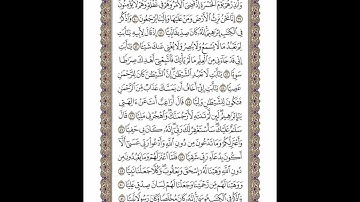 وَأَنذِرْهُمْ يَوْمَ ٱلْحَسْرَةِ إِذْ قُضِىَ ٱلْأَمْرُ وَهُمْ فِى غَفْلَةٍ وَهُمْ لَا يُؤْمِنُونَ
٣٩ إِنَّا نَحْنُ نَرِثُ ٱلْأَرْضَ وَمَنْ عَلَيْهَا وَإِلَيْنَا يُرْجَعُونَ ٤٠ وَٱذْكُرْ
فِى ٱلْكِتَٰبِ إِبْرَٰهِيمَ إِنَّهُۥ كَانَ صِدِّيقًا نَّبِيًّا ٤١ إِذْ قَالَ لِأَبِيهِ يَٰٓأَبَتِ
لِمَ تَعْبُدُ مَا لَا يَسْمَعُ وَلَا يُبْصِرُ وَلَا يُغْنِى عَنكَ شَيْـًٔا ٤٢ يَٰٓأَبَتِ
إِنِّى قَدْ جَآءَنِى مِنَ ٱلْعِلْمِ مَا لَمْ يَأْتِكَ فَٱتَّبِعْنِىٓ أَهْدِكَ صِرَٰطًا
سَوِيًّا ٤٣ يَٰٓأَبَتِ لَا تَعْبُدِ ٱلشَّيْطَٰنَ إِنَّ ٱلشَّيْطَٰنَ كَانَ لِلرَّحْمَٰنِ
عَصِيًّا ٤٤ يَٰٓأَبَتِ إِنِّىٓ أَخَافُ أَن يَمَسَّكَ عَذَابٌ مِّنَ ٱلرَّحْمَٰنِ
فَتَكُونَ لِلشَّيْطَٰنِ وَلِيًّا ٤٥ قَالَ أَرَاغِبٌ أَنتَ عَنْ ءَالِهَتِى
يَٰٓإِبْرَٰهِيمُ لَئِن لَّمْ تَنتَهِ لَأَرْجُمَنَّكَ وَٱهْجُرْنِى مَلِيًّا ٤٦ قَالَ
سَلَٰمٌ عَلَيْكَ سَأَسْتَغْفِرُ لَكَ رَبِّىٓ إِنَّهُۥ كَانَ بِى حَفِيًّا ٤٧
وَأَعْتَزِلُكُمْ وَمَا تَدْعُونَ مِن دُونِ ٱللَّهِ وَأَدْعُوا۟ رَبِّى عَسَىٰٓ أَلَّآ
أَكُونَ بِدُعَآءِ رَبِّى شَقِيًّا ٤٨ فَلَمَّا ٱعْتَزَلَهُمْ وَمَا يَعْبُدُونَ مِن
دُونِ ٱللَّهِ وَهَبْنَا لَهُۥٓ إِسْحَٰقَ وَيَعْقُوبَ وَكُلًّا جَعَلْنَا نَبِيًّا
٤٩ وَوَهَبْنَا لَهُم مِّن رَّحْمَتِنَا وَجَعَلْنَا لَهُمْ لِسَانَ صِدْقٍ عَلِيًّا
٥٠ وَٱذْكُرْ فِى ٱلْكِتَٰبِ مُوسَىٰٓ إِنَّهُۥ كَانَ مُخْلَصًا وَكَانَ رَسُولًا نَّبِيًّا ٥١